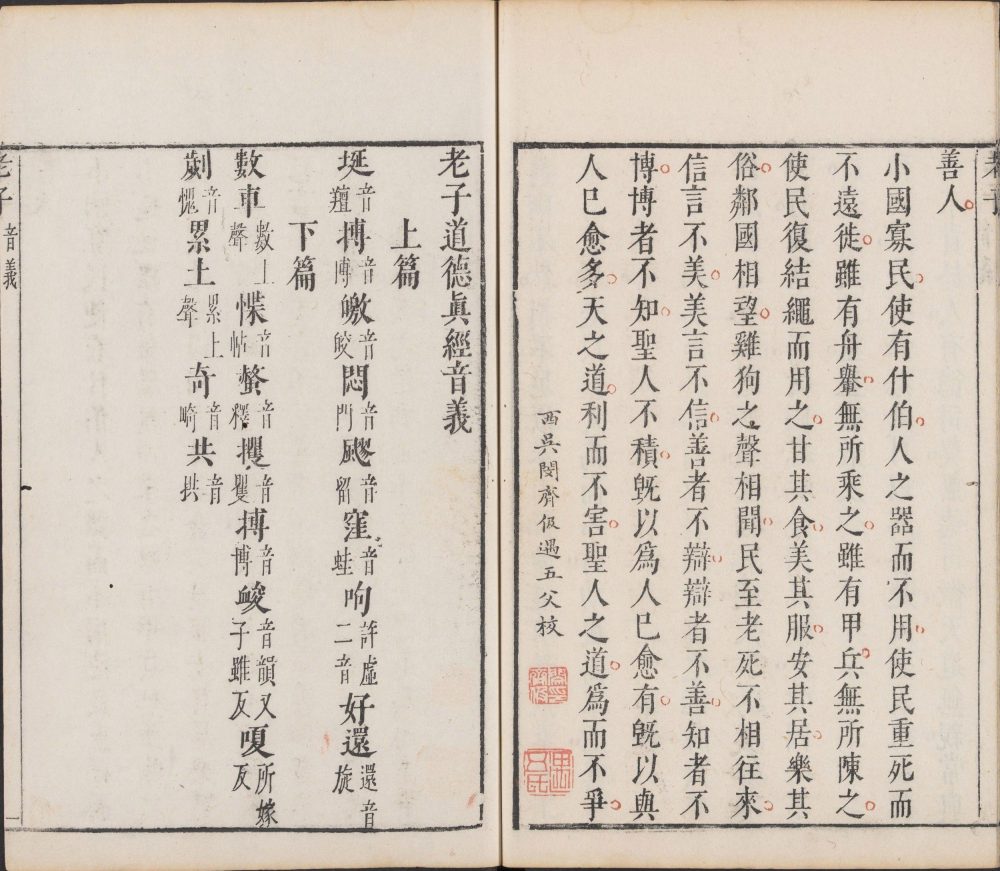 老子
善人
小國寡民使有什伯人之器而不用使民重死而
不遠徙雖有舟轝無所乘之雖有甲兵無所陳之
使民復結繩而用之甘其食美其服安其居樂其
俗鄰國相望雞狗之聲相聞民至老死不相往來
信言不美美言不信善者不辯辯者不善知者不
博博者不知聖人不積旣以爲人巳愈有旣以與
人巳愈多天之道利而不害聖人之道爲而不爭
西吳閔齊伋遇五父校
老子道德眞經音義
上篇
埏音羶摶音博皦音皎悶音門飂音留窪音蛙呴許虛二音好還還音旋
下篇
數車數上聲惵音帖螫音釋攫音矍搏音博峻音韻又子雖反嗄所嫁反
劌音愧累土累上聲奇音崎共音拱
老子 音義 一